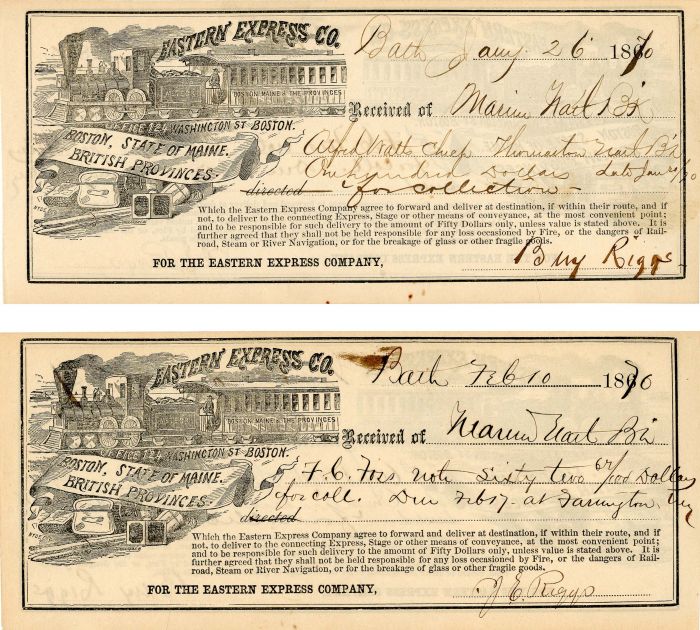 EASTERN EXPRESS CO.
Bath Jany 26 1870
BOSTON MAINE & THE PROVINCES
Received of Marine Natl B'k
OFFICE 84 WASHINGTON ST BOSTON.
BOSTON, STATE OF MAINE.
BRITISH PROVINCES.
Alfred Watts Check Thomaston Natl B'k
One hundred Dollars date Jany
directed for collection
Which the Eastern Express Company agree to forward and deliver at destination, if within their route, and if
not, to deliver to the connecting Express, Stage or other means of conveyance, at the most convenient point;
and to be responsible for such delivery to the amount of Fifty Dollars only, unless value is stated above. It is
further agreed that they shall not be held responsible for any loss occasioned by Fire, or the dangers of Rail-
road, Steam or River Navigation, or for the breakage of glass or other fragile goods.
FOR THE EASTERN EXPRESS COMPANY, Riggs
EASTERN EXPRESS CO.
Bath Feb 10 1870
BOSTON MAINE & THE PROVINCES
Received of Marine Natl B'k
OFFICE 84 WASHINGTON ST BOSTON.
BOSTON, STATE OF MAINE.
BRITISH PROVINCES.
F. C. note Sixty two 62/100 Dollars
for coll. Due Feb 17 at Farmington
directed
Which the Eastern Express Company agree to forward and deliver at destination, if within their route, and if
not, to deliver to the connecting Express, Stage or other means of conveyance, at the most convenient point;
and to be responsible for such delivery to the amount of Fifty Dollars only, unless value is stated above. It is
further agreed that they shall not be held responsible for any loss occasioned by Fire, or the dangers of Rail-
road, Steam or River Navigation, or for the breakage of glass or other fragile goods.
FOR THE EASTERN EXPRESS COMPANY, J E Riggs